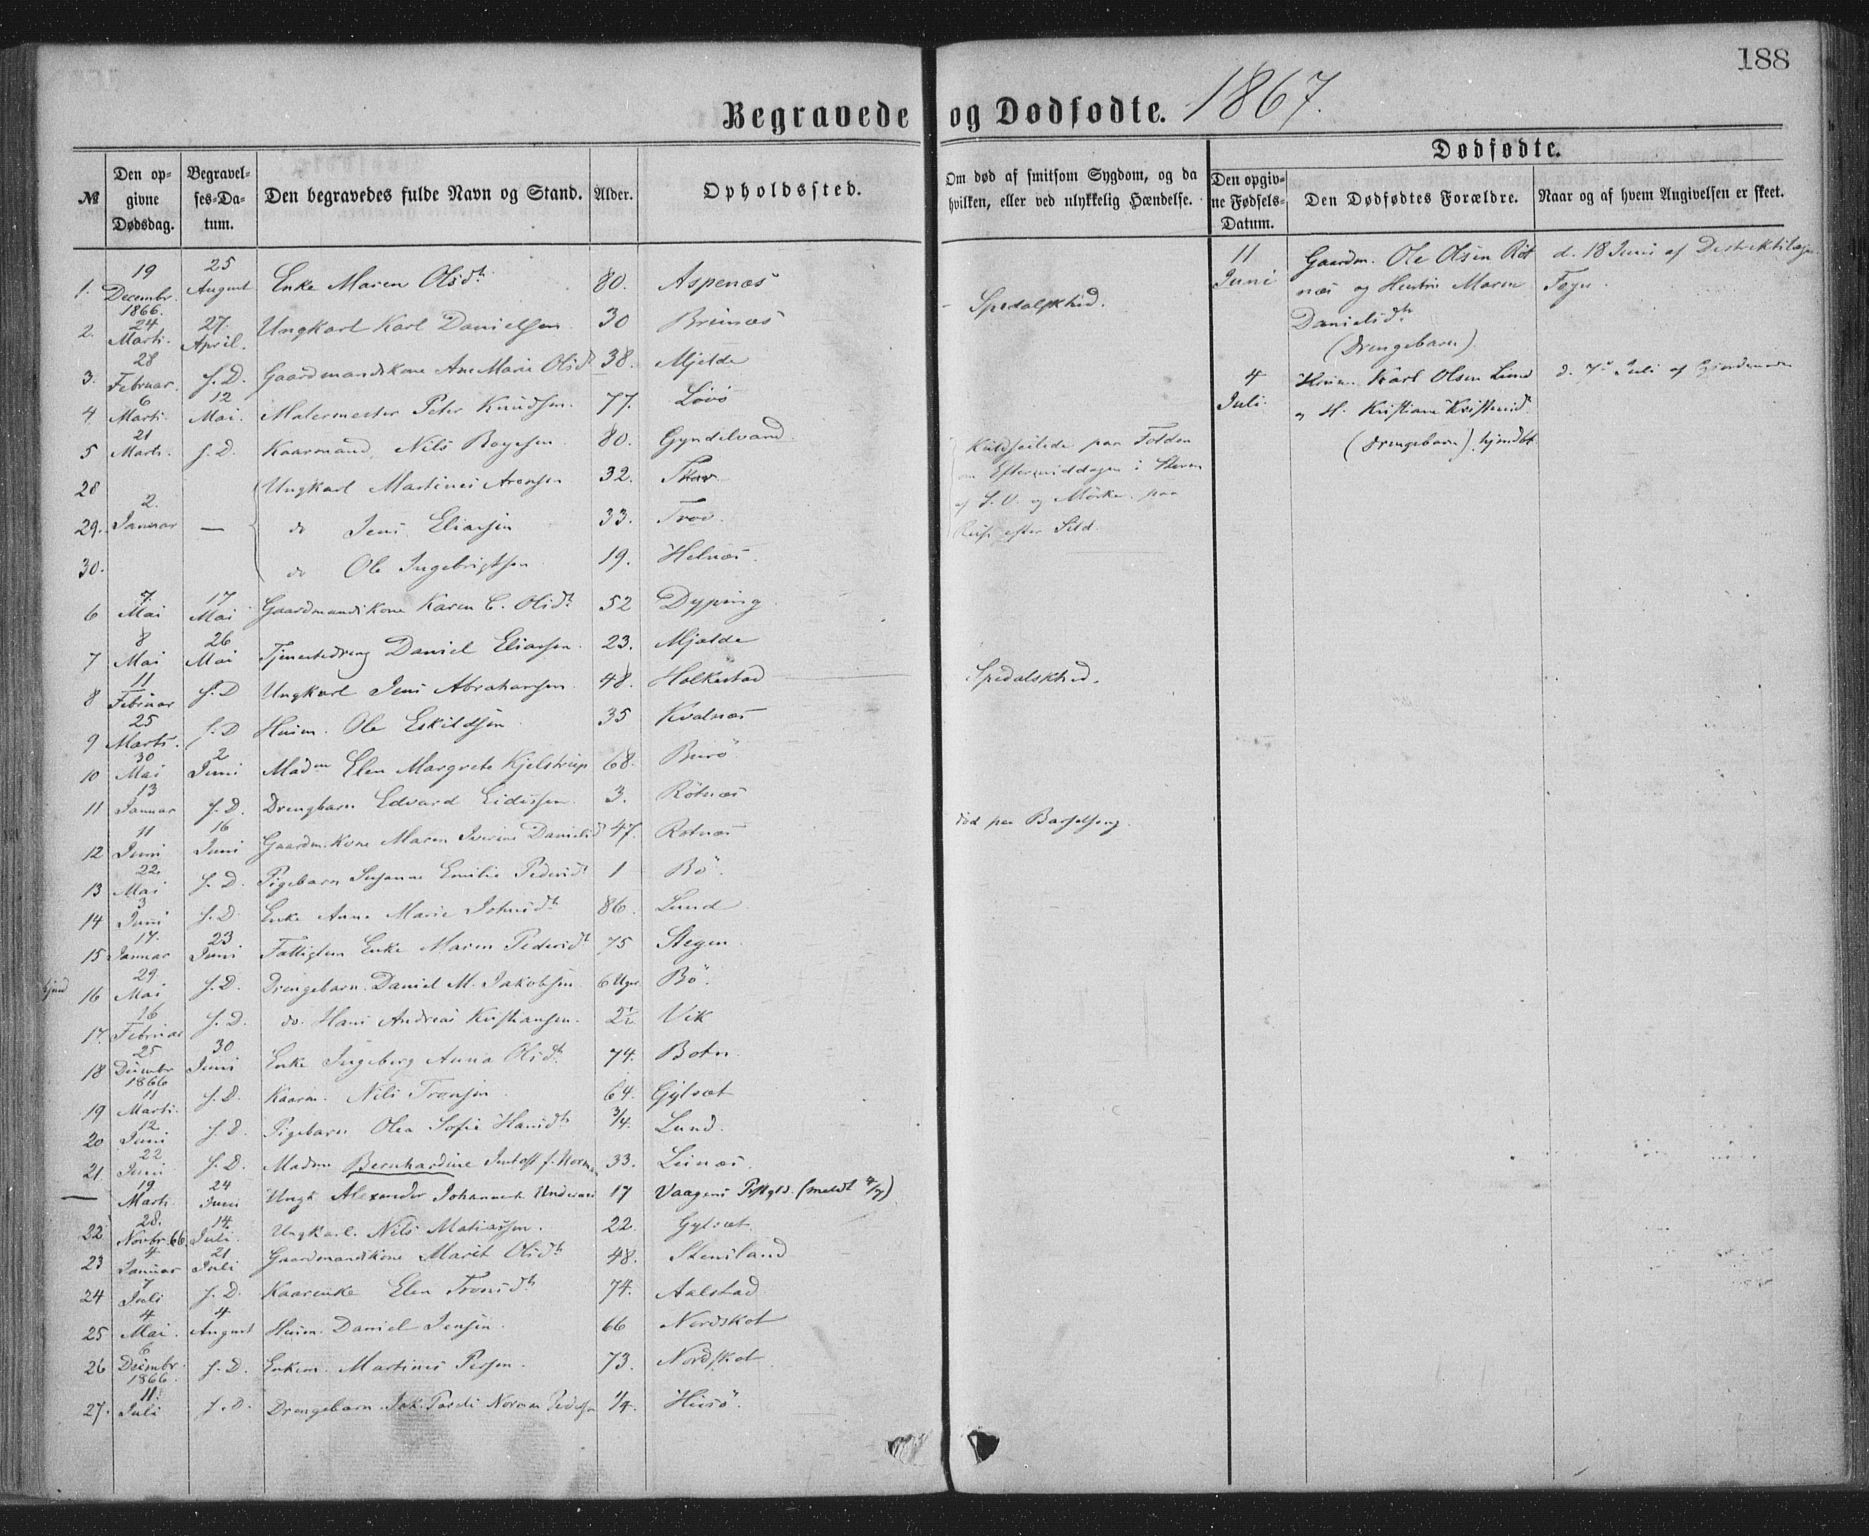 188
Begravede og Dødfødte. 1867.
Dødfødte.
№ Den opgivne Dødsdag. Begravelses-Datum. Den begravedes fulde Navn og Stand. Alder. Opholdssted. Om død af smitsom Sygdom, og da hvilken, eller ved ulykkelig Hændelse. Den opgivne Fødsels-Datum. Den Dødfødtes Forældre. Naar og af hvem Angivelsen er skeet.
1. 19 Decembr. 1866. 25 August Enke Maren Olsdtr 80. Aspenæs
2. 24 Marts. 27. April. Ungkarl Karl Danielsen 30 Breinæs Spedalskhed.
3. 28 Februar. s. D. Gaardmandskone Ane Marie Olsd 38. Mjelde
4 6 Marts. 12 Mai. Malermester Peter Knudsen. 77. Lövö
5 21 Marts. s. D. Kaarmand, Nils Bogesen 80. Gyndelvand
28 Ungkarl Martines Aronsen 32. Skav
29. 2. Januar — do Jens Eliassen 33. Trov.
30. do Ole Ingebrigtsen 19. Helnæs.
Kuldseilede paa Folden
om Eftermiddagen i Storm
af S. V. og Mörke paa
Reise efter Sild.
6 7. Mai 17 Mai Gaardmandskone Karen C. Olsdtr 52 Dyping
7 8 Mai 26 Mai Tjenestedreng Daniel Eliassen. 23. Mjelde
8 11 Februar s. D Ungkarl Jens Abrahamsen 48. Holkestad Spedalskhed.
9 25 Marts. s. D Husm. Ole Eskildsen 35 Kvalnæs
10 30 Mai 2 Juni Madm Elen Margrete Kjelstrup 68. Burö
11 13 Januar s. D. Drengbarn Edvard Eidissen. 3. Rötnæs
12 11 Juni 16 Juni Gaardm. kone Maren Iverine Danielsd 47. Rotnæs död paa Barselseng.
13 22 Mai s. D. Pigebarn Susanne Emilie Pedersdt 1 Bö.
14 3 Juni s. D. Enke Anne Marie Johnsdtr 86. Lund
15 17. Januar 23 Juni Fattiglem Enke Maren Pedersdt 75 Stegen.
16 29 Mai s. D. Drengebarn. Daniel M. Jakobsen 6 Uger Bö.
17. 16 Februar s. D. do. Hans Andreas Kristiansen. 2½ Vik
18 25 Decembr 1866 30 Juni Enke Ingeborg Anna Olsdtr 74. Botn.
19 11 Marts. s. D. Kaarm. Nils Tronsen 64. Gylsæt
20 12 Juni s. D. Pigebarn Olea Sofie Hansdtr 3/4. Lund.
21 22 Juni s. D. Madme Bernhardine f. Norman 33. Leinæs.
— 19 Marts 24 Juni Ungk Alexander Johannes 17 Vaagens Pstgld. (meldt 4/7)
22 28. Novbr. 66 14 Juli. Ungkarl. Nils Matiassen. 22. Gylsæt.
23 4 Januar 21 Juli Gaardmandskone Marit Olsdtr 48. Stensland
24 7 Juli s. D. Kaarenke Elen Tronsdtr 74. Aalstad
25 4 Mai. 4 August Husm. Daniel Jensen. 66 Nordskot
26 6 Decembr. 1866. s. D. Enkem. Martines Persen. 73. Nordskot
27. 11. Juli s. D. Drengebarn Joh. Norman 1/4. Husö.
11 Juni Gaardm. Ole Olsen Röt d. 18 Juni af
næs og Hustru Maren
Danielsdtr
(Drengebarn).
4 Juli. Husm. Karl Olsen Lund d. 7de Juli af Gjordemoder
og H. Kristiane
(Drengebarn). hjemdbt